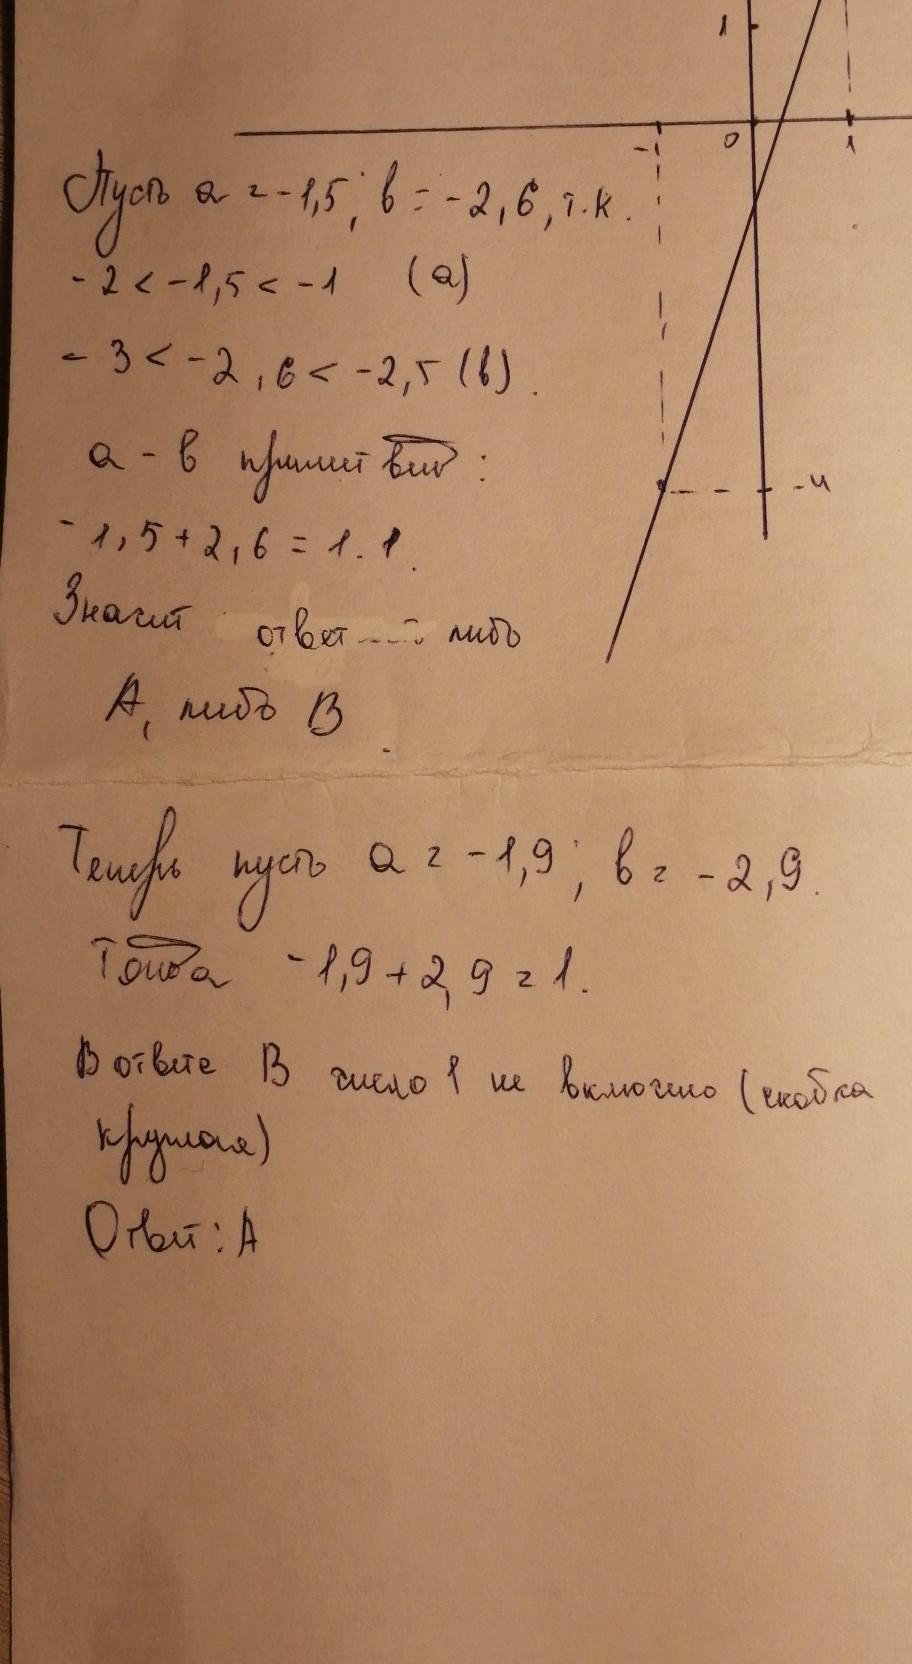 1
-1
0
1
Пусть a = -1,5; b = -2,6, т.к.
-2 < -1,5 < -1 (a)
-3 < -2,6 < -2,5 (b).
a - b примет вид:
-4
-1,5 + 2,6 = 1.1.
Значит ответ либо
А, либо В.
Теперь пусть a = -1,9; b = -2,9.
Тогда -1,9 + 2,9 = 1.
В ответе В число 1 не включено (скобка
круглая)
Ответ: А